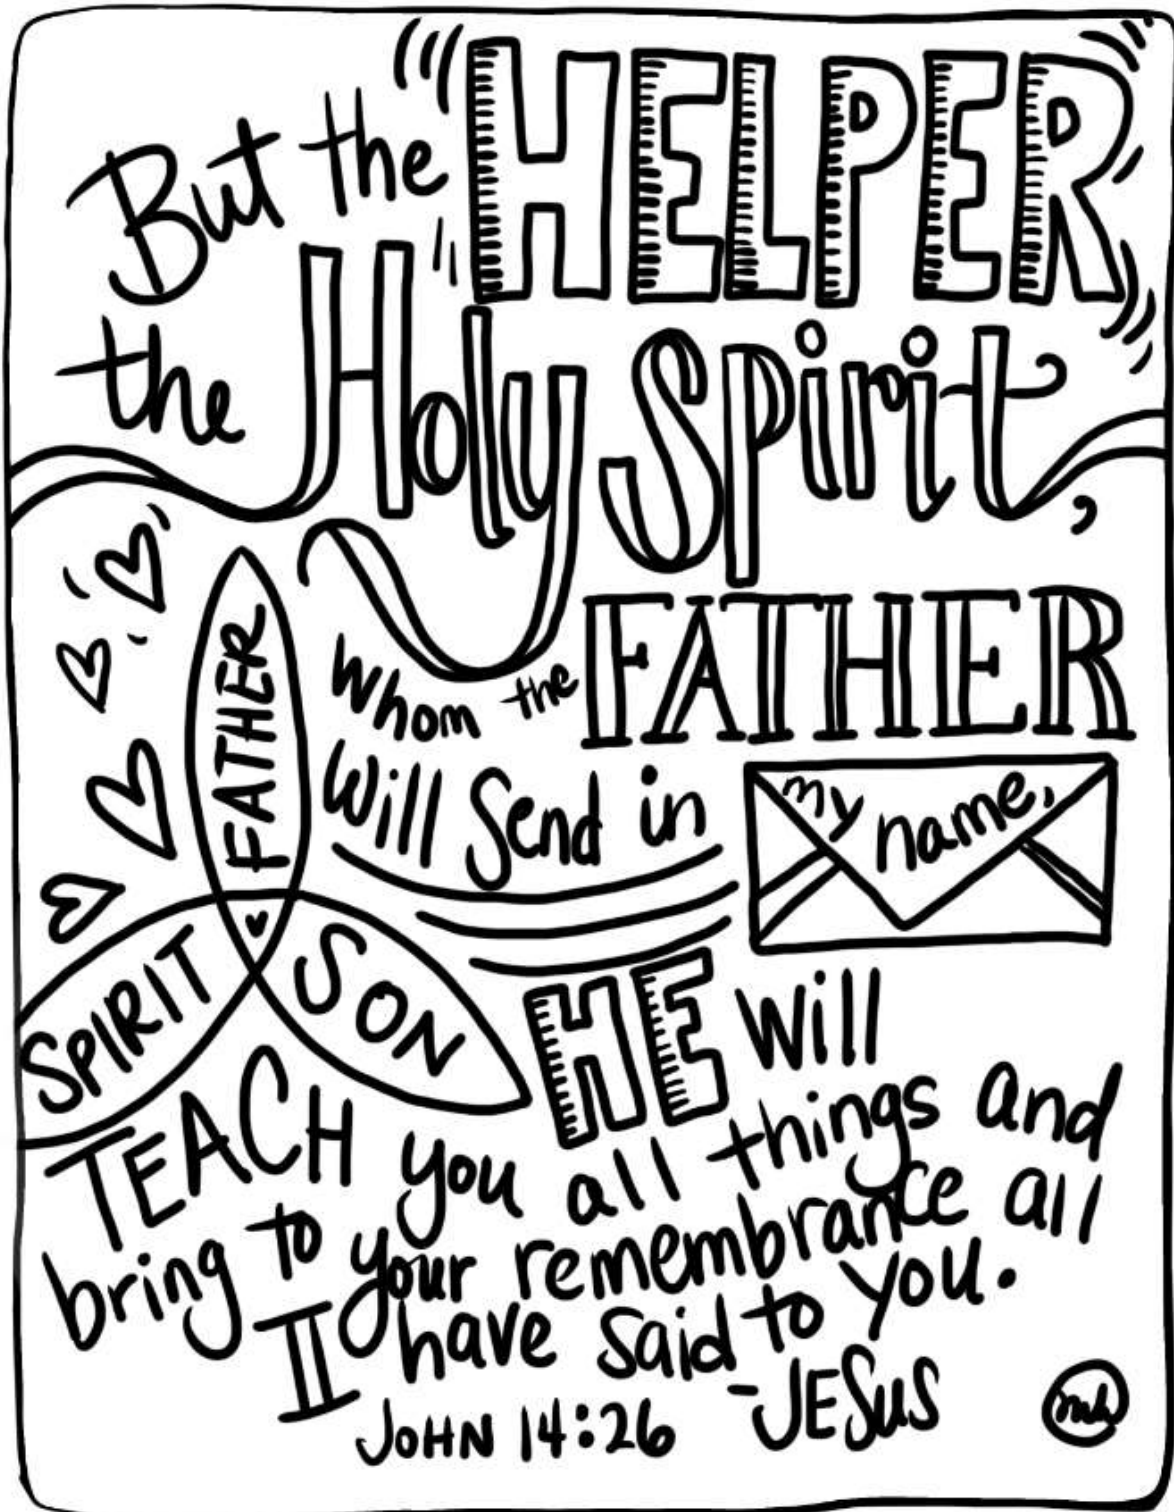 But the HELPER
the Holy Spirit,
Whom the FATHER
Will Send in my name,
FATHER
SPIRIT
SON
HE will
TEACH you all things and
bring to your remembrance all
I have said to you.
-JESUS
JOHN 14:26